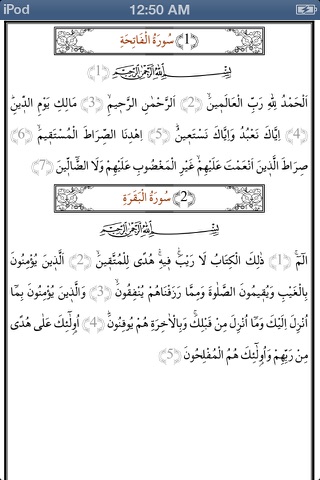 iPod 12:50 AM
﴿1﴾ سُورَةُ الْفَاتِحَةِ
بِسْمِ اللّٰهِ الرَّحْمٰنِ الرَّحِيمِ ﴿1﴾
اَلْحَمْدُ لِلّٰهِ رَبِّ الْعَالَمِينَۙ ﴿2﴾ اَلرَّحْمٰنِ الرَّحِيمِۙ ﴿3﴾ مَالِكِ يَوْمِ الدِّينِۜ
﴿4﴾ اِيَّاكَ نَعْبُدُ وَاِيَّاكَ نَسْتَعِينُۜ ﴿5﴾ اِهْدِنَا الصِّرَاطَ الْمُسْتَقِيمَۙ ﴿6﴾
صِرَاطَ الَّذِينَ اَنْعَمْتَ عَلَيْهِمْۙ غَيْرِ الْمَغْضُوبِ عَلَيْهِمْ وَلَا الضَّٓالِّينَ ﴿7﴾
﴿2﴾ سُورَةُ الْبَقَرَةِ
بِسْمِ اللّٰهِ الرَّحْمٰنِ الرَّحِيمِ
الٓمٓۚ ﴿1﴾ ذٰلِكَ الْكِتَابُ لَا رَيْبَۚۛ فِيهِۚۛ هُدًى لِلْمُتَّقِينَۙ ﴿2﴾ اَلَّذِينَ يُؤْمِنُونَ
بِالْغَيْبِ وَيُقِيمُونَ الصَّلٰوةَ وَمِمَّا رَزَقْنَاهُمْ يُنْفِقُونَۙ ﴿3﴾ وَالَّذِينَ يُؤْمِنُونَ بِمَٓا
اُنْزِلَ اِلَيْكَ وَمَٓا اُنْزِلَ مِنْ قَبْلِكَۚ وَبِالْاٰخِرَةِ هُمْ يُوقِنُونَۜ ﴿4﴾ اُو۬لٰٓئِكَ عَلٰى هُدًى
مِنْ رَبِّهِمْ وَاُو۬لٰٓئِكَ هُمُ الْمُفْلِحُونَ ﴿5﴾